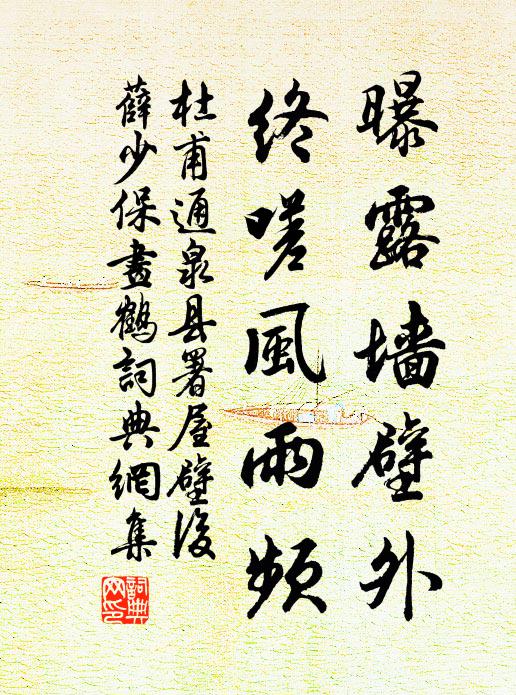 曝露墙壁外
终嗟風雨频
杜甫通泉县署屋壁後
薛少保畫鶴詞典網集
詞典網印